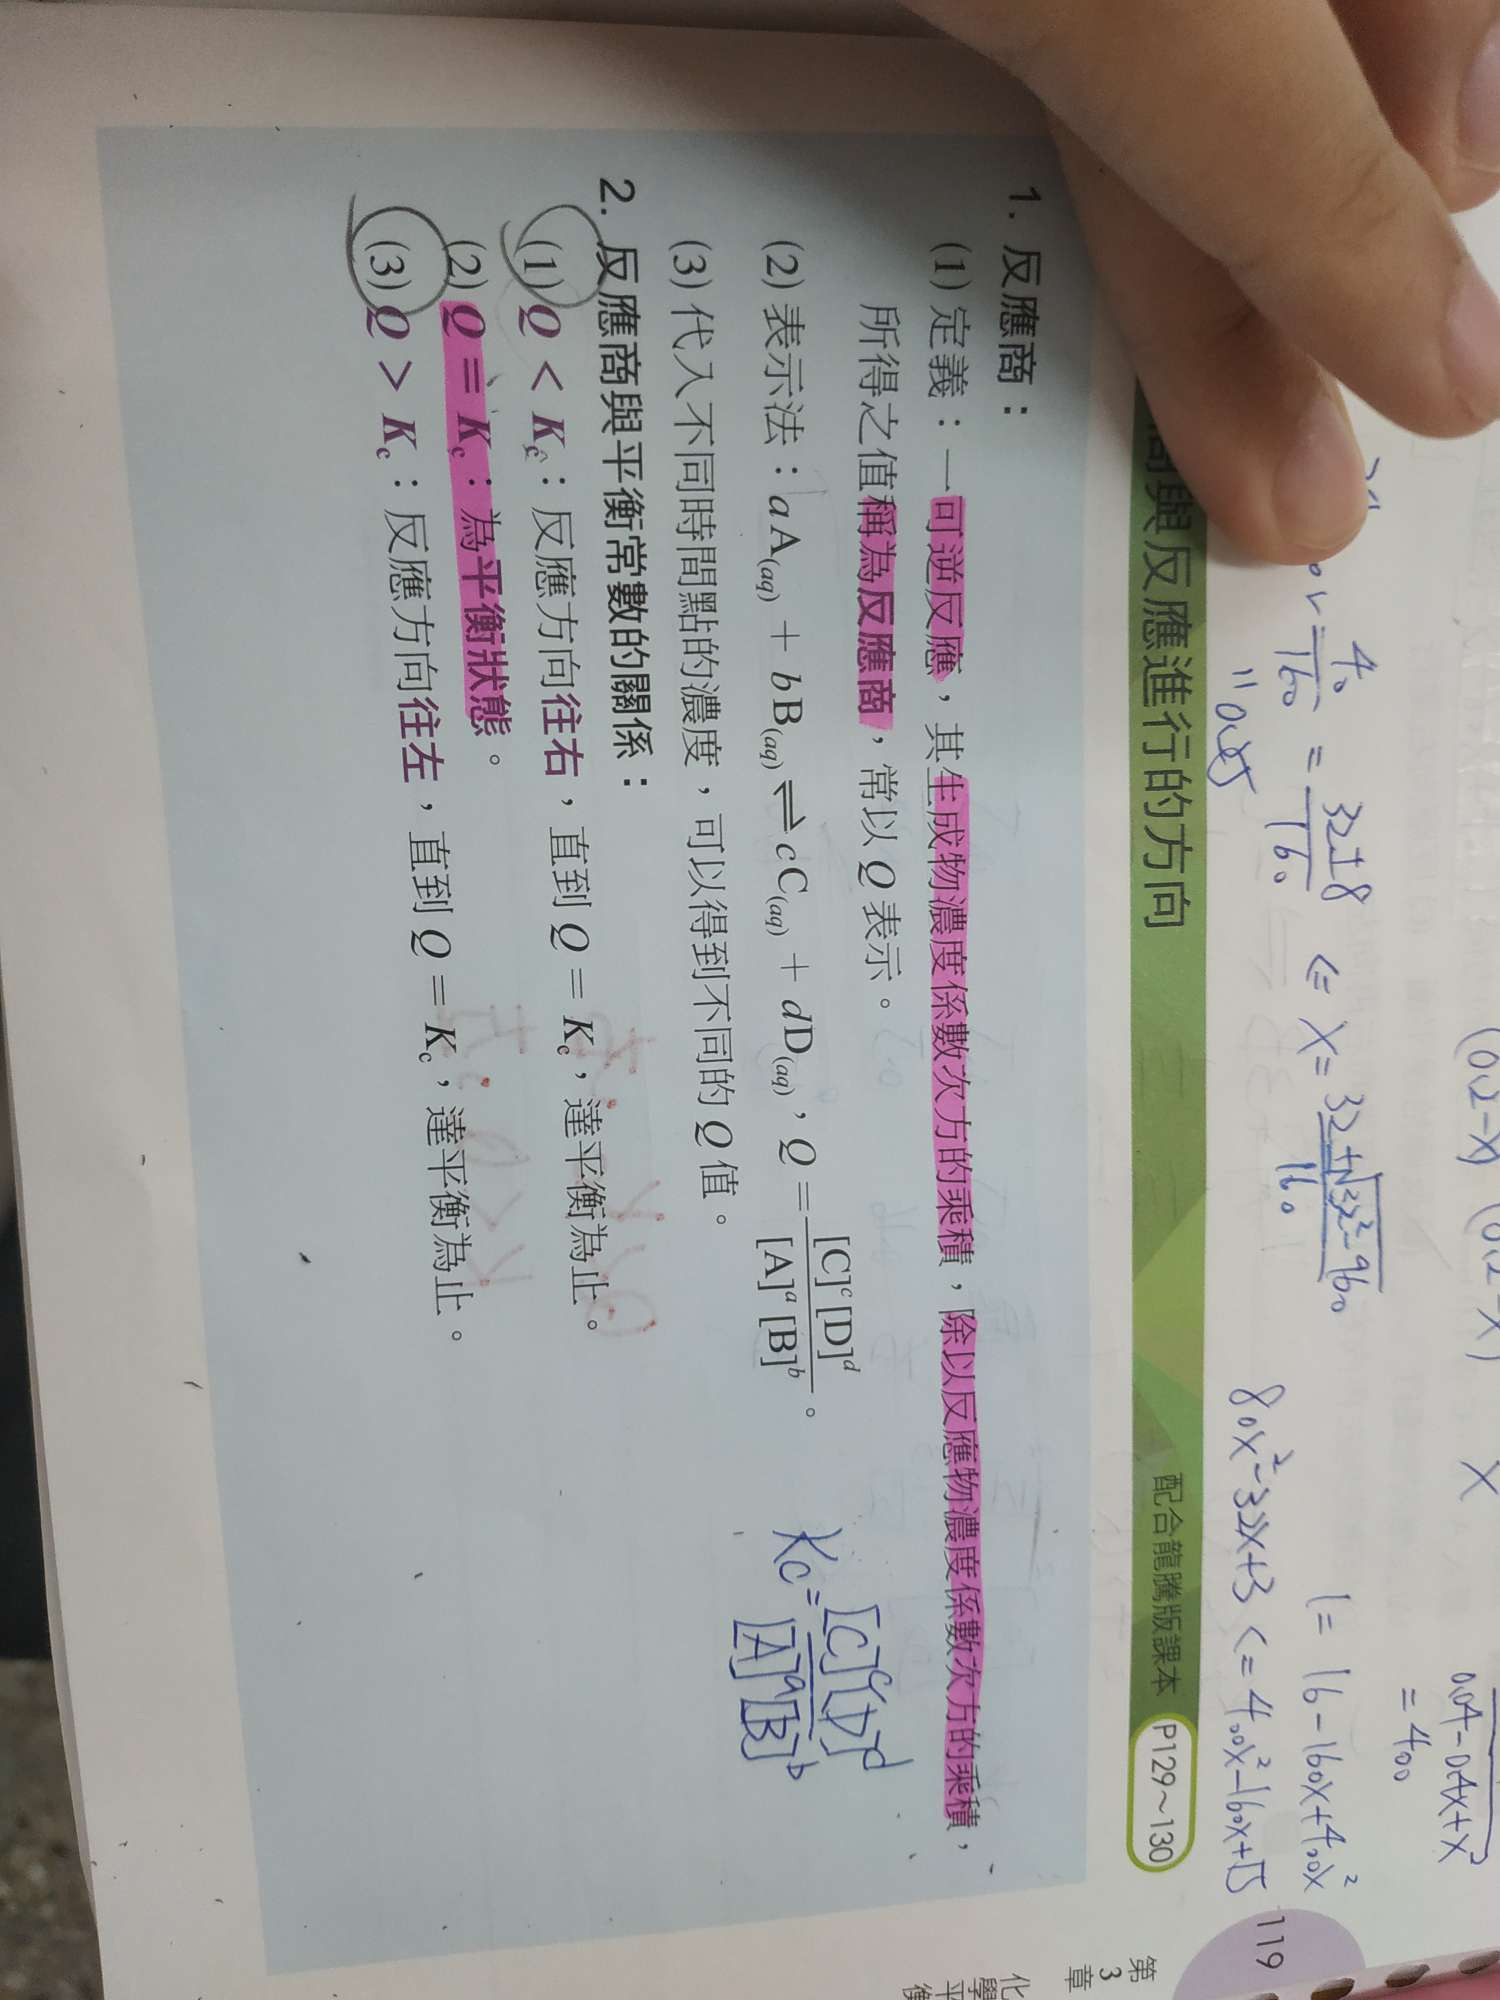 (0.2-x) (0.2-x) x
0.04-0.4x+x²
=400
1=16-160x+400x²
80x²-32x+3 <= 400x²-160x+15
<= x=32±√32²-960
160
=32±8
160
40
160
=
與反應進行的方向 配合龍騰版課本 P129~130
119
第3章
化學平衡
1. 反應商：
(1) 定義：一可逆反應，其生成物濃度係數次方的乘積，除以反應物濃度係數次方的乘積，
所得之值稱為反應商，常以 Q 表示。
(2) 表示法：aA(aq) + bB(aq) ⇌ cC(aq) + dD(aq)，Q = [C]ᶜ [D]ᵈ / [A]ᵃ [B]ᵇ。
Kc = [C]ᶜ[D]ᵈ / [A]ᵃ[B]ᵇ
(3) 代入不同時間點的濃度，可以得到不同的 Q 值。
2. 反應商與平衡常數的關係：
(1) Q < Kc：反應方向往右，直到 Q = Kc，達平衡為止。
(2) Q = Kc：為平衡狀態。
(3) Q > Kc：反應方向往左，直到 Q = Kc，達平衡為止。